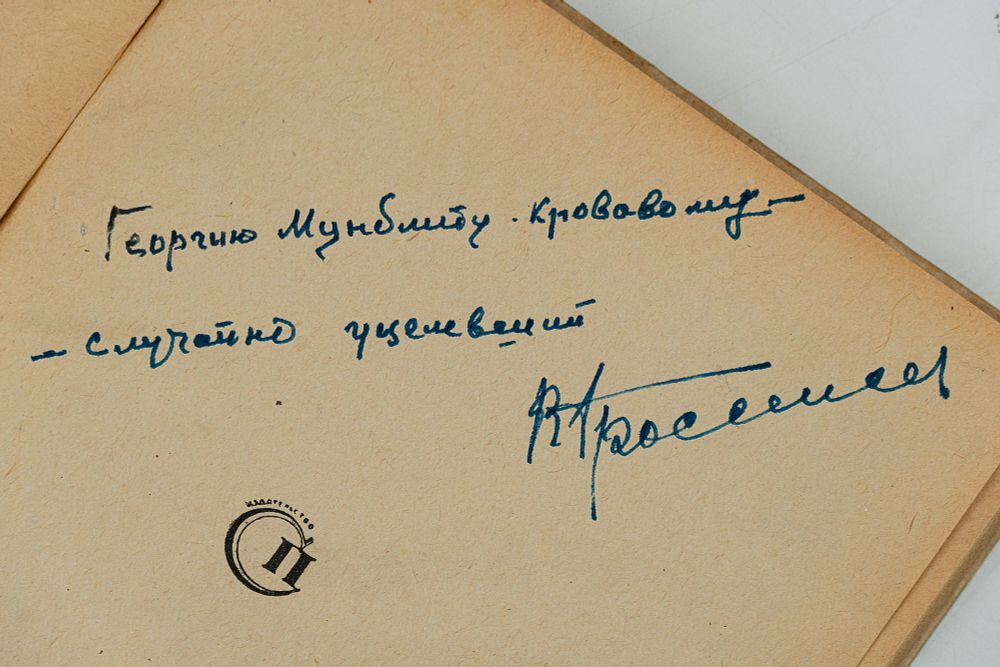 Георгию Мунблиту. кровавому –
– случайно уцелевший
В Гроссман
ИЗДАТЕЛЬСТВО
СП